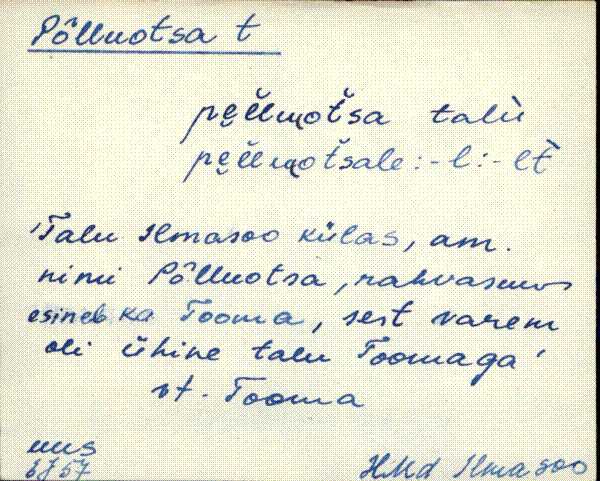 Põlluotsa t
pe̮llu̯otsa talu
pe̮llu̯otsale : -l : -lt
Talu Ilmasoo külas, am.
nimi Põlluotsa, rahvasuus
esineb ka Tooma, sest varem
oli ühine talu Toomaga
vt. Tooma
HMd Ilmasoo